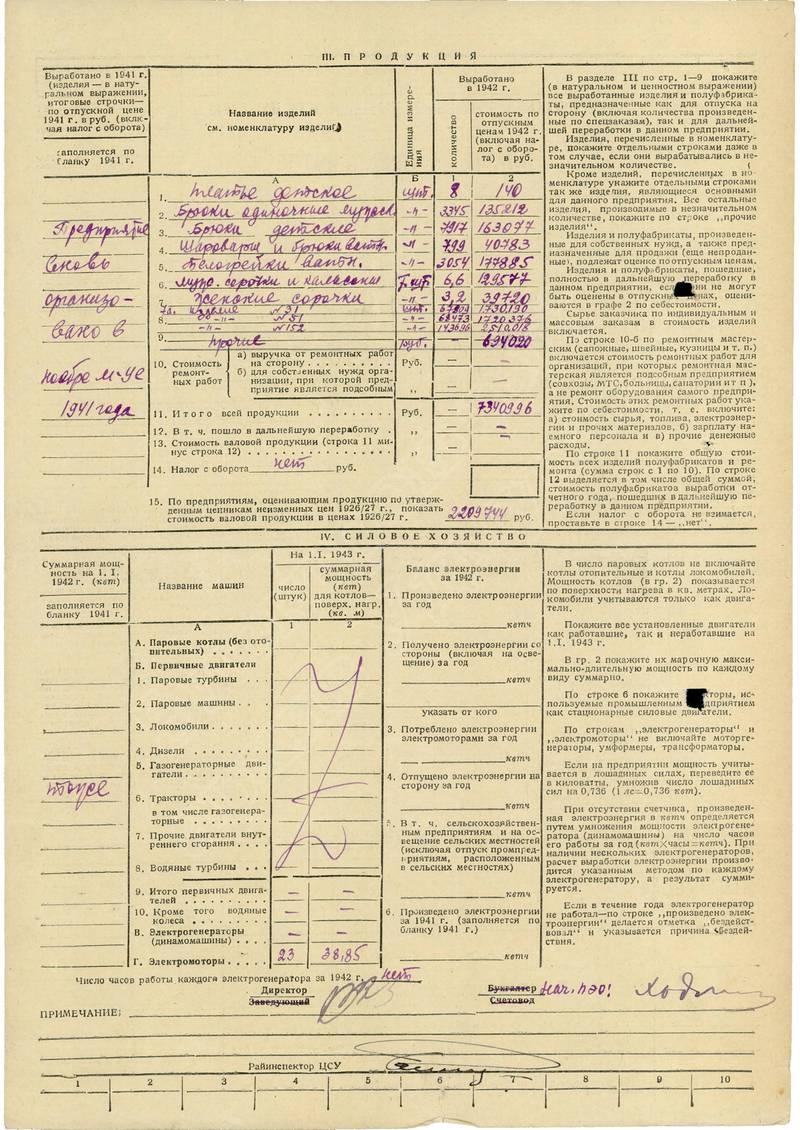 III. ПРОДУКЦИЯ
Выработано в 1941 г.
(изделия — в нату-
ральном выражении,
итоговые строчки—
по отпускной цене
1941 г. в руб. (вклю-
чая налог с оборота)
заполняется по
бланку 1941 г.
Предприятие
вновь
организо-
вано в
ноябре м-це
1941 года
Название изделий
см. номенклатуру изделий
Единица измере-
ния
Выработано
в 1942 г.
количество
стоимость по
отпускным
ценам 1942 г.
(включая на-
лог с оборо-
та) в руб.
А Б 1 2
1. Платье детское шт. 8 140
2. Брюки одиночные 3345 135212
3. Брюки детские -"- 7917 163077
4. Шаровары и брюки ватн. -"- 799 40783
5. Телогрейки ватн. -"- 3054 177895
6. сорочки и кальсоны т.шт. 6,6 129577
7. Женские сорочки -"- 3,2 39720
7а. Изделие №31 шт. 1730190
8. -"- №51 -"- 1720376
-"- №152 -"- 2510018
9. Прочие руб. — 694020
10. Стоимость
ремонт-
ных работ
а) выручка от ремонтных работ
на сторону Руб. — —
б) для собственных нужд орга-
низации, при которой пред-
приятие является подсобным „ — —
11. Итого всей продукции Руб. — 7340996
12. В т. ч. пошло в дальнейшую переработку „ — —
13. Стоимость валовой продукции (строка 11 ми-
нус строка 12) „ — —
14. Налог с оборота нет руб.
15. По предприятиям, оценивающим продукцию по утверж-
денным ценникам неизменных цен 1926/27 г., показать
стоимость валовой продукции в ценах 1926/27 г. 2209744 руб.
В разделе III по стр. 1—9 покажите
(в натуральном и ценностном выражении)
все выработанные изделия и полуфабрика-
ты, предназначенные как для отпуска на
сторону (включая количества произведен-
ные по спецзаказам), так и для дальней-
шей переработки в данном предприятии.
Изделия, перечисленные в номенклату-
ре, покажите отдельными строками даже в
том случае, если они вырабатывались в не-
значительном количестве.
Кроме изделий, перечисленных в но-
менклатуре укажите отдельными строками
так же изделия, являющиеся основными
для данного предприятия. Все остальные
изделия, производимые в незначительном
количестве, покажите по строке „прочие
изделия".
Изделия и полуфабрикаты, произведен-
ные для собственных нужд, а также пред-
назначенные для продажи (еще непродан-
ные), подлежат оценке по отпускным ценам.
Изделия и полуфабрикаты, пошедшие,
полностью в дальнейшую переработку в
данном предприятии, если они не могут
быть оценены в отпускных ценах, оцени-
ваются в графе 2 по себестоимости.
Сырье заказчика по индивидуальным и
массовым заказам в стоимость изделий
включается.
По строке 10-б по ремонтным мастер-
ским (сапожные, швейные, кузницы и т. п.)
включается стоимость ремонтных работ для
организаций, при которых ремонтная мас-
терская является подсобным предприятием
(совхозы, МТС, больницы, санатории и т п ),
а не ремонт оборудования самого предпри-
ятия. Стоимость этих ремонтных работ ука-
жите по себестоимости, т. е. включите:
а) стоимость сырья, топлива, электроэнер-
гии и прочих материалов, б) зарплату на-
емного персонала и в) прочие денежные
расходы.
По строке 11 покажите общую стои-
мость всех изделий полуфабрикатов и ре-
монта (сумма строк с 1 по 10). По строке
12 выделяется в том числе общей суммой,
стоимость полуфабрикатов выработки от-
четного года, пошедших в дальнейшую пе-
реработку в данном предприятии.
Если налог с оборота не взимается,
проставьте в строке 14 — „нет".
IV. СИЛОВОЕ ХОЗЯЙСТВО
Суммарная мощ-
ность на 1. I.
1942 г. (квт)
заполняется по
бланку 1941 г.
тоже
Название машин
На 1.I. 1943 г.
число
(штук)
суммарная
мощность
(квт)
для котлов—
поверх. нагр.
(кв. м)
А 1 2
А. Паровые котлы (без ото-
пительных)
Б. Первичные двигатели
1. Паровые турбины
2. Паровые машины
3. Локомобили
4. Дизели
5. Газогенераторные дви-
гатели
6. Тракторы
в том числе газогенера-
торные
7. Прочие двигатели внут-
реннего сгорания
8. Водяные турбины
9. Итого первичных двига-
телей — —
10. Кроме того водяные
колеса — —
В. Электрогенераторы
(динамомашины) — —
Г. Электромоторы 23 38,85
Баланс электроэнергии
за 1942 г.
1. Произведено электроэнергии
за год
квтч
2. Получено электроэнергии со
стороны (включая на осве-
щение) за год
квтч
указать от кого
3. Потреблено электроэнергии
электромоторами за год
квтч
4. Отпущено электроэнергии на
сторону за год
квтч
5. В т. ч. сельскохозяйствен-
ным предприятиям и на ос-
вещение сельских местностей
(исключая отпуск промпред-
приятиям, расположенным
в сельских местностях)
квтч
6. Произведено электроэнергии
за 1941 г. (заполняется по
бланку 1941 г.)
квтч
В число паровых котлов не включайте
котлы отопительные и котлы локомобилей.
Мощность котлов (в гр. 2) показывается
по поверхности нагрева в кв. метрах. Ло-
комобили учитываются только как двига-
тели.
Покажите все установленные двигатели
как работавшие, так и неработавшие на
1.I. 1943 г.
В гр. 2 покажите их марочную макси-
мально-длительную мощность по каждому
виду суммарно.
По строке 6 покажите тракторы, ис-
пользуемые промышленным предприятием
как стационарные силовые двигатели.
По строкам „электрогенераторы" и
„электромоторы" не включайте моторге-
нераторы, умформеры, трансформаторы.
Если на предприятии мощность учиты-
вается в лошадиных силах, переведите ее
в киловатты, умножив число лошадиных
сил на 0,736 (1 лс=0,736 квт).
При отсутствии счетчика, произведен-
ная электроэнергия в квтч определяется
путем умножения мощности электрогене-
ратора (динамомашины) на число часов
его работы за год (квт×часы=квтч). При
наличии нескольких электрогенераторов,
расчет выработки электроэнергии произво-
дится указанным методом по каждому
электрогенератору, а результат сумми-
руется.
Если в течение года электрогенератор
не работал—по строке „произведено элек-
троэнергии" делается отметка „бездейст-
вовал" и указывается причина бездей-
ствия.
Число часов работы каждого электрогенератора за 1942 г. нет
Директор
Заведующий
Бухгалтер Нач. ПЭО!
Счетовод
ПРИМЕЧАНИЕ:
Райинспектор ЦСУ
1 2 3 4 5 6 7 8 9 10